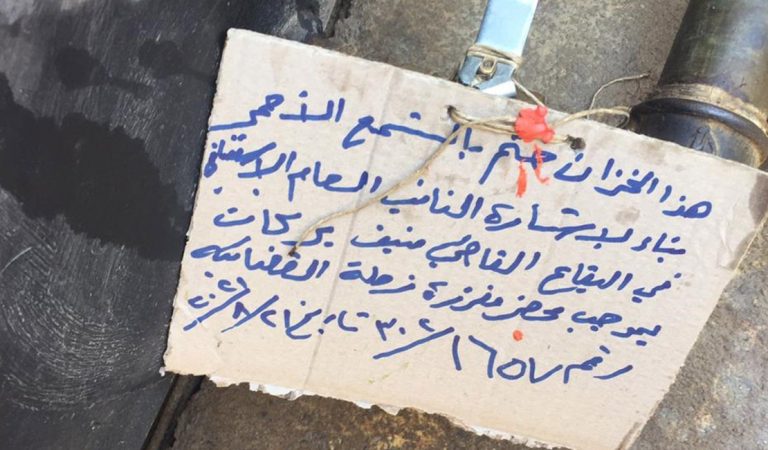 هذا الخزان ختم بالشمع الأحمر
بناء لاستشارة النائب العام الاستئنافي
في البقاع القاضي منيف بركات
بموجب محضر مفرزة زحلة القضائية
رقم ١٦٥٧/٣٠٢ تاريخ